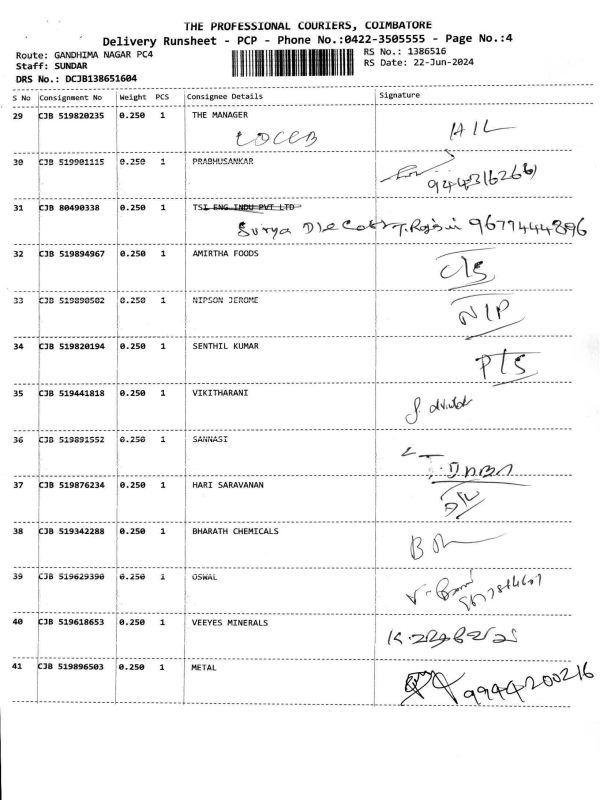 THE PROFESSIONAL COURIERS, COIMBATORE
Delivery Runsheet - PCP - Phone No.:0422-3505555 - Page No.:4
Route: GANDHIMA NAGAR PC4
Staff: SUNDAR
DRS No.: DCJB138651604
RS No.: 1386516
RS Date: 22-Jun-2024
S No Consignment No Weight PCS Consignee Details Signature
29 CJB 519820235 0.250 1 THE MANAGER
30 CJB 519901115 0.250 1 PRABHUSANKAR
31 CJB 80490338 0.250 1 TSI ENG INDU PVT LTD
Surya 9677444896
32 CJB 519894967 0.250 1 AMIRTHA FOODS
C/S
33 CJB 519890502 0.250 1 NIPSON JEROME
NIP
34 CJB 519820194 0.250 1 SENTHIL KUMAR
PTS
35 CJB 519441818 0.250 1 VIKITHARANI
36 CJB 519891552 0.250 1 SANNASI
37 CJB 519876234 0.250 1 HARI SARAVANAN
38 CJB 519342288 0.250 1 BHARATH CHEMICALS
39 CJB 519629390 0.250 1 OSWAL
40 CJB 519618653 0.250 1 VEEYES MINERALS
41 CJB 519896503 0.250 1 METAL
9944200216